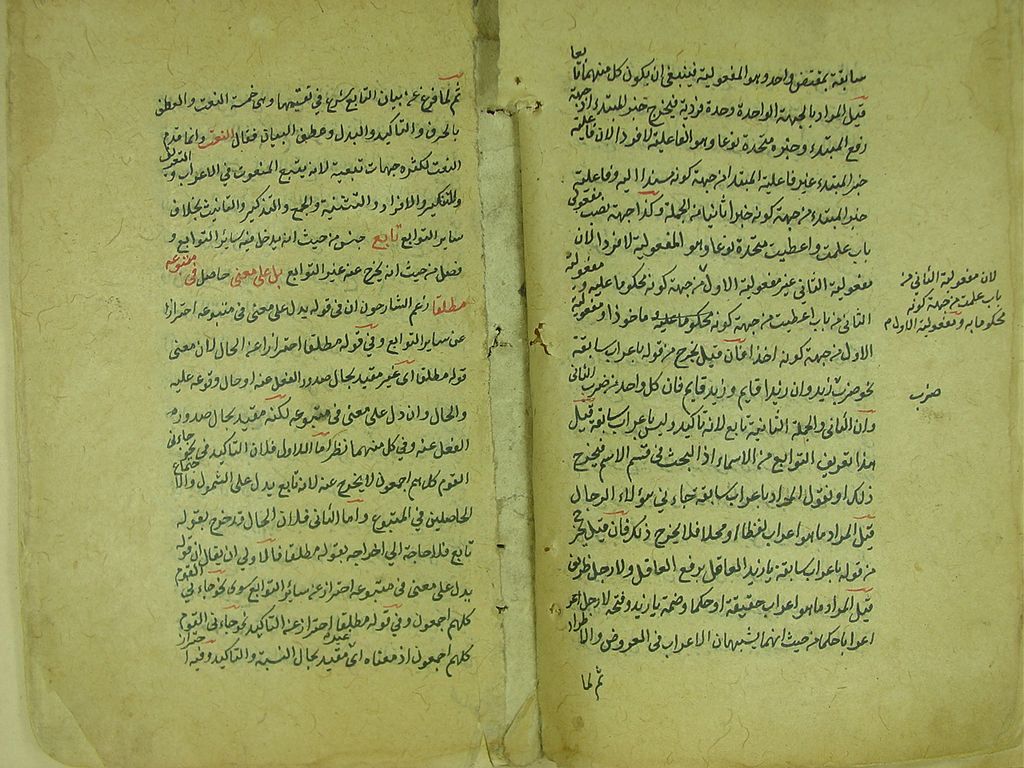 سابقة بمقتض واحد وهو المفعولية فينبغي ان يكون كل منهما تابعا
قيل المراد بالجهة الواحدة وحدة فردية فيخرج خبر المبتدء اذ جهة
رفع المبتدء وخبره متحدة نوعا وهو الفاعلية لا فردا لان فاعلية
خبر المبتدء غير فاعلية المبتدا من جهة كونه مسندا اليه وفاعلية
خبر المبتدء من جهة كونه خبرا ثانيا من الجملة وكذا جهة نصب مفعولي
باب علمت واعطيت متحدة نوعا وهو المفعولية لا فردا لان
مفعولية الثاني غير مفعولية الاول من جهة كونه محكوما عليه ومفعولية
الثاني من باب اعطيت من جهة كونه ماخوذا ومفعولية
الاول من جهة كونه اخذا فان قيل يخرج من قوله باعراب سابقه
نحو ضرب ضرب زيد وان زيدا قايم وزيد قايم فان كل واحد من ضرب الثاني
وان الثاني والجملة الثانية تابع لانه تاكيد وليس باعراب سابقه قيل
هذا تعريف التوابع من الاسماء اذ البحث في قسم الاسم فيخرج
ذلك او نقول المراد باعراب سابقه جاءني هؤلاء الرجال
قيل المراد ما هو اعراب لفظا او محلا فلا يخرج ذلك فان قيل يخرج
من قوله باعراب سابقه يا زيد العاقل برفع العاقل ولا رجل ظريف
قيل المراد ما هو اعراب حقيقة او حكما وضمة يا زيد وفتحة لا رجل
اعرابا حكما من حيث انهما يشبهان الاعراب في العروض والاطراد
ثم لما
لان مفعولية الثاني من
باب علمت من جهة كونه
محكوما به ومفعولية الاول
ضرب
ثم لما فرغ عن بيان التابع شرع في تقسيمها وهي خمسة النعت والعطف
بالحرف والتاكيد والبدل وعطف البيان فقال النعت وانما قدم
النعت لكثرة جهات تبعية لانه يتبع المنعوت في الاعراب والتعريف
والتنكير والافراد والتثنية والجمع والتذكير والتانيث بخلاف
ساير التوابع تابع جنس من حيث انه يدخل فيه ساير التوابع و
فصل من حيث انه يخرج عنه غير التوابع يدل على معنى حاصل في متبوعه
مطلقا زعم الشارحون ان في قوله يدل على معنى في متبوعه احترازا
عن ساير التوابع وفي قوله مطلقا احترازا عن الحال لان معنى
قوله مطلقا اى غير مقيد بحال صدور الفعل عنه او حال وقوعه عليه
والحال وان دل على معنى في متبوعه لكنه مقيد بحال صدور
الفعل عنه وفي كل منهما نظر اما الاول فلان التاكيد في نحو جاءني
القوم كلهم اجمعون لا يخرج عنه لانه تابع يدل على الشمول والاجتماع
الحاصلين في المتبوع واما الثاني فلان الحال قد خرج بقوله
تابع فلا حاجة الى اخراجه بقوله مطلقا فالاولى ان يقال ان قوله
يدل على معنى في متبوعه احتراز عن ساير التوابع سوى نحو جاءني القوم
كلهم اجمعون وفي قوله مطلقا احتراز عن التاكيد نحو جاءني القوم
كلهم اجمعون اذ معناه اى غير مقيد بحال النسبة والتاكيد وفيه احتراز